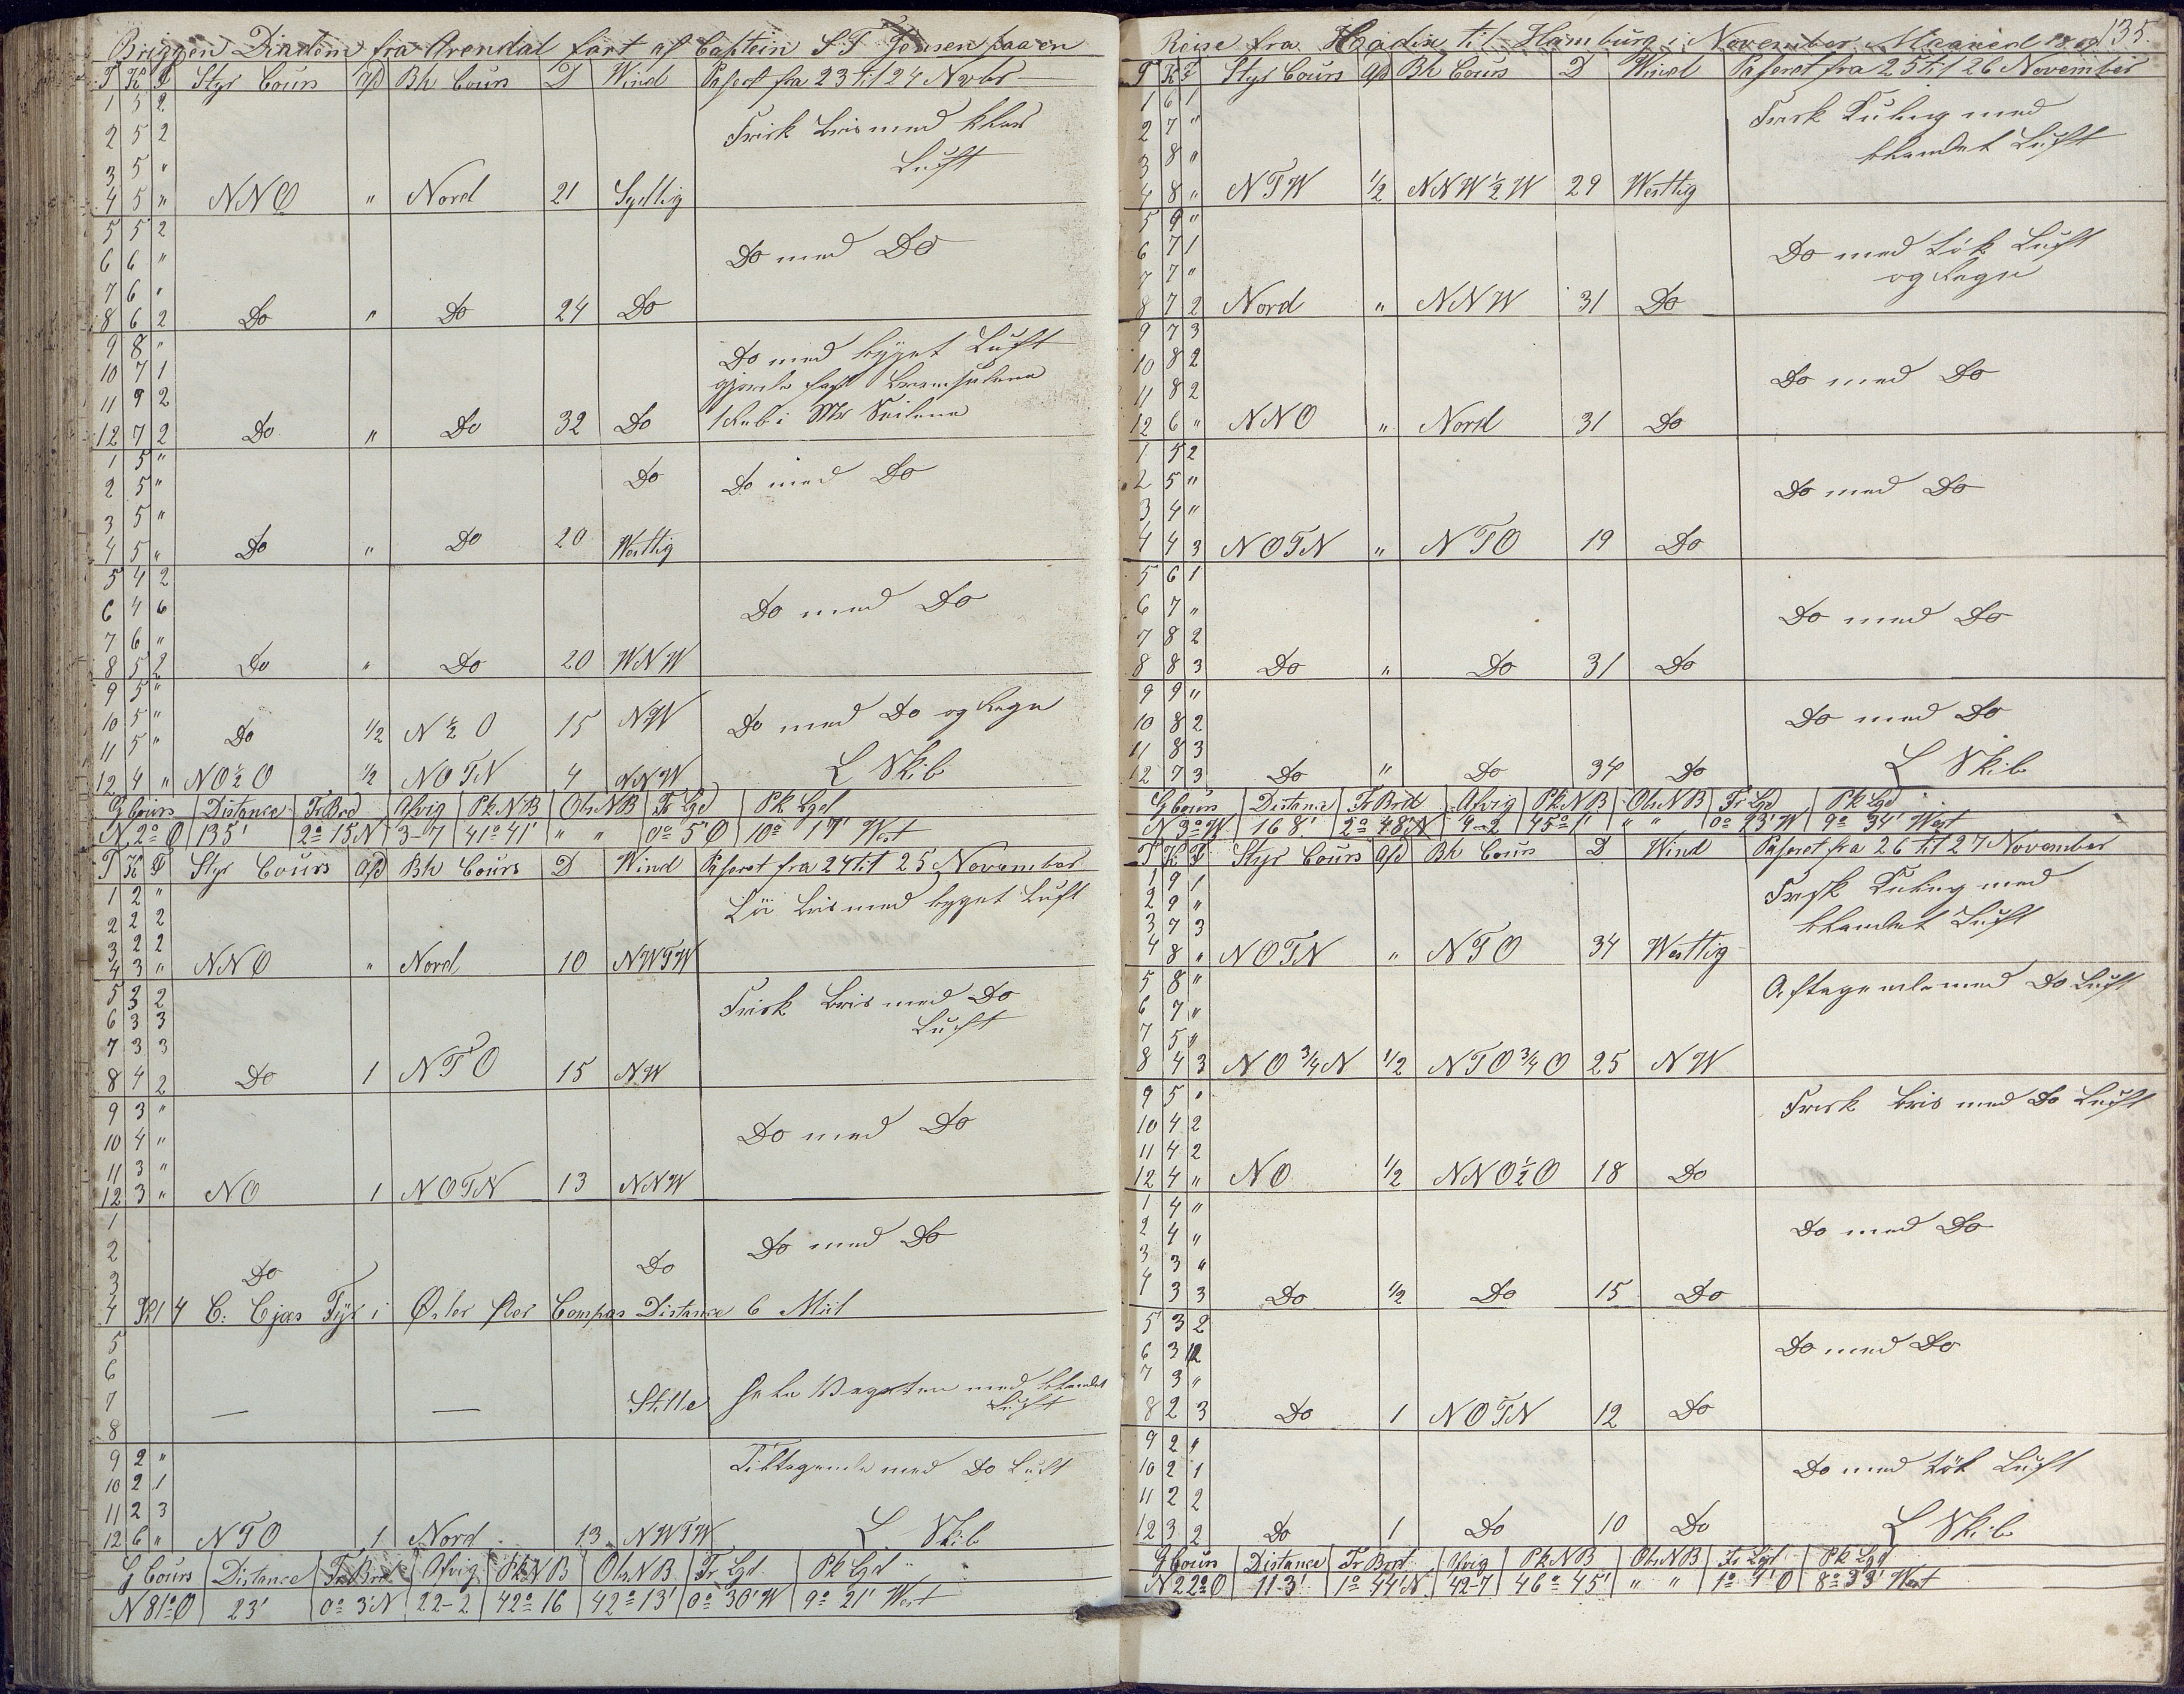 Briggen Diadem fra Arendal ført af Captein S T Jensen paa en
T K F Styr Cours Afd Bh Cours D Wind Paseret fra 23 til 24 Novbr
1 5 2
2 5 2 Frisk Bris med klar
3 5 " Luft
4 5 " NNO " Nord 21 Sydlig
5 5 2
6 6 " Do med Do
7 6 "
8 6 2 Do " Do 24 Do
9 8 " Do med bÿget Luft
10 7 1 gjorde fast Bramseilene
11 9 2
12 7 2 Do " Do 32 Do 1 Reb i Mrs Seilene
1 5 "
2 5 " Do Do med Do
3 5 "
4 5 " Do " Do 20 Westlig
5 4 2
6 4 6 Do med Do
7 6 "
8 5 2 Do " Do 20 WNW
9 5 "
10 5 " Do 1/2 N 1/2 O 15 NW Do med Do og Regn
11 5 "
12 4 " NO 1/2 O 1/2 NOTN 4 NNW L Skib
G Cours Distance Fr Brd Afvig Pk NB Obs NB Fr Lgd Pk Lgd
N 2° O 135' 2° 15 N 3-7 41° 41' " " 0° 5' O 10° 17' West
T K F Styr Cours Afd Bh Cours D Wind Paseret fra 24 til 25 November
1 2 " Lö Bris med byget Luft
2 2 2
3 2 2
4 3 " NNO " Nord 10 NWTW
5 3 2 Frisk Bris med Do
6 3 3 Luft
7 3 3
8 4 2 Do 1 NTO 15 NW
9 3 "
10 4 " Do med Do
11 3 "
12 3 " NO 1 NOTN 13 NNW
1
2 Do Do med Do
3 Do
4 Kl 4 C: Cjæs Fÿr i Øster per Compas Distance 6 Miil
5
6
7 — — Stille hele Vagten med blandet
8 Luft
9 2 " Tiltagende med Do Luft
10 2 1
11 2 3
12 6 " NTO 1 Nord 13 NWTW L Skib
G Cours Distance Fr Brd Afvig Pk NB Obs NB Fr Lgd Pk Lgd
N 81° O 23' 0° 3' N 22-2 42° 16 42° 13' 0° 30' W 9° 21' West
Reise fra Kadix til Hamburg i November Maaned 135.
T K F Styr Cours Afd Bh Cours D Wind Paseret fra 25 til 26 November
1 6 1 Frisk Kuling med
2 7 "
3 8 " blandet Luft
4 8 " NTW 1/2 NNW 1/2 W 29 Westlig
5 9 "
6 7 1 Do med tök Luft
7 7 " og Regn
8 7 2 Nord " NNW 31 Do
9 7 3
10 8 2 Do med Do
11 8 2
12 6 " NNO " Nord 31 Do
1 5 2
2 5 " Do med Do
3 4 "
4 4 3 NOTN " NTO 19 Do
5 6 1
6 7 " Do med Do
7 8 2
8 8 3 Do " Do 31 Do
9 9 "
10 8 2 Do med Do
11 8 3
12 7 3 Do " Do 34 Do L Skib
G Cours Distance Fr Brd Afvig Pk NB Obs NB Fr Lgd Pk Lgd
N 3° W 168' 2° 48' N 9-2 45° 1' " " 0° 23' W 9° 34' West
T K F Styr Cours Afd Bh Cours D Wind Paseret fra 26 til 27 November
1 9 1 Frisk Kuling med
2 9 "
3 7 3 blandet Luft
4 8 " NOTN " NTO 34 Westlig
5 8 " Aftagende med Do Luft
6 7 "
7 5 "
8 4 3 NO 3/4 N 1/2 NTO 3/4 O 25 NW
9 5 " Frisk Bris med Do Luft
10 4 2
11 4 2
12 4 " NO 1/2 NNO 1/2 O 18 Do
1 4 "
2 4 " Do med Do
3 3 "
4 3 3 Do 1/2 Do 15 Do
5 3 2
6 3 2 Do med Do
7 3 "
8 2 3 Do 1 NOTN 12 Do
9 2 "
10 2 1 Do med tök Luft
11 2 2
12 3 2 Do 1 Do 10 Do L Skib
G Cours Distance Fr Brd Afvig Pk NB Obs NB Fr Lgd Pk Lgd
N 22° O 113' 1° 44' N 42-7 46° 45' " " 1° 1' O 8° 33' West